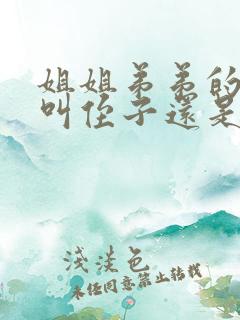 姐姐弟弟的
叫侄子還是
淺淡色
未經同意禁止轉載